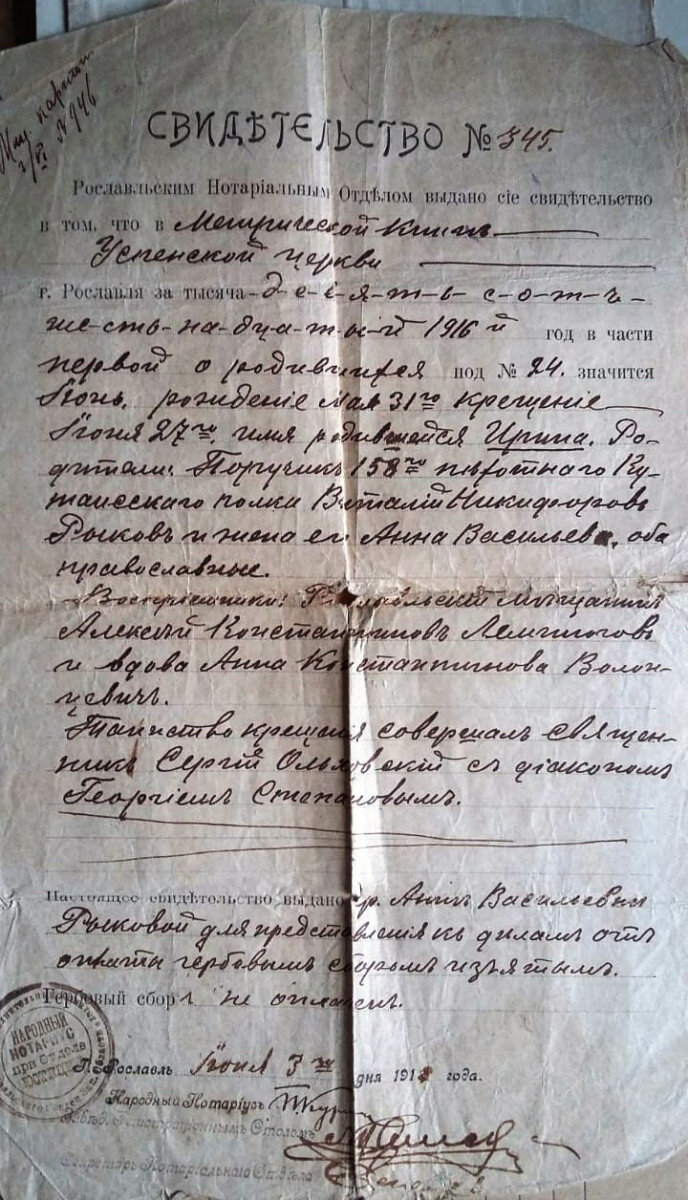 СВИДѢТЕЛЬСТВО № 345.
Рославльским Нотаріальным Отдѣлом выдано сіе свидѣтельство
в том, что в Метрической Книгѣ
Успенской церкви
г. Рославля за тысяча-д-е-в-я-т-ь- с-о-т-ъ-
ше-сть-на-дца-т-ы-й 1916 й год в части
первой о родившихся под № 24. значится
Іюнь, рожденіе мая 31го крещеніе
Іюня 27го, имя родившейся Ирина. Ро-
дители: Поручик 158го пѣхотнаго Ку-
таисскаго полка Виталій Никифоровъ
Рыковъ и жена его Анна Васильева, оба
православные.
Воспріемники: Рославльскій мѣщанинъ
Алексѣй Константиновъ
и вдова Анна Константинова Волон-
цевичъ.
Таинство крещенія совершалъ священ-
никъ Сергій Ольховскій съ діакономъ
Георгіемъ Степановымъ.
Настоящее свидѣтельство выдано гр. Аннѣ Васильевнѣ
Рыковой для представленія къ дѣламъ отъ
оплаты гербовымъ сборомъ изъятымъ.
Гербовый сбор не оплачен.
Г. Рославль Іюня 3го дня 1918 года.
НАРОДНЫЙ
НОТАРИУС
при Отделе
Народный Нотаріусъ
Столомъ
Секретарь Нотаріальнаго Отдѣла